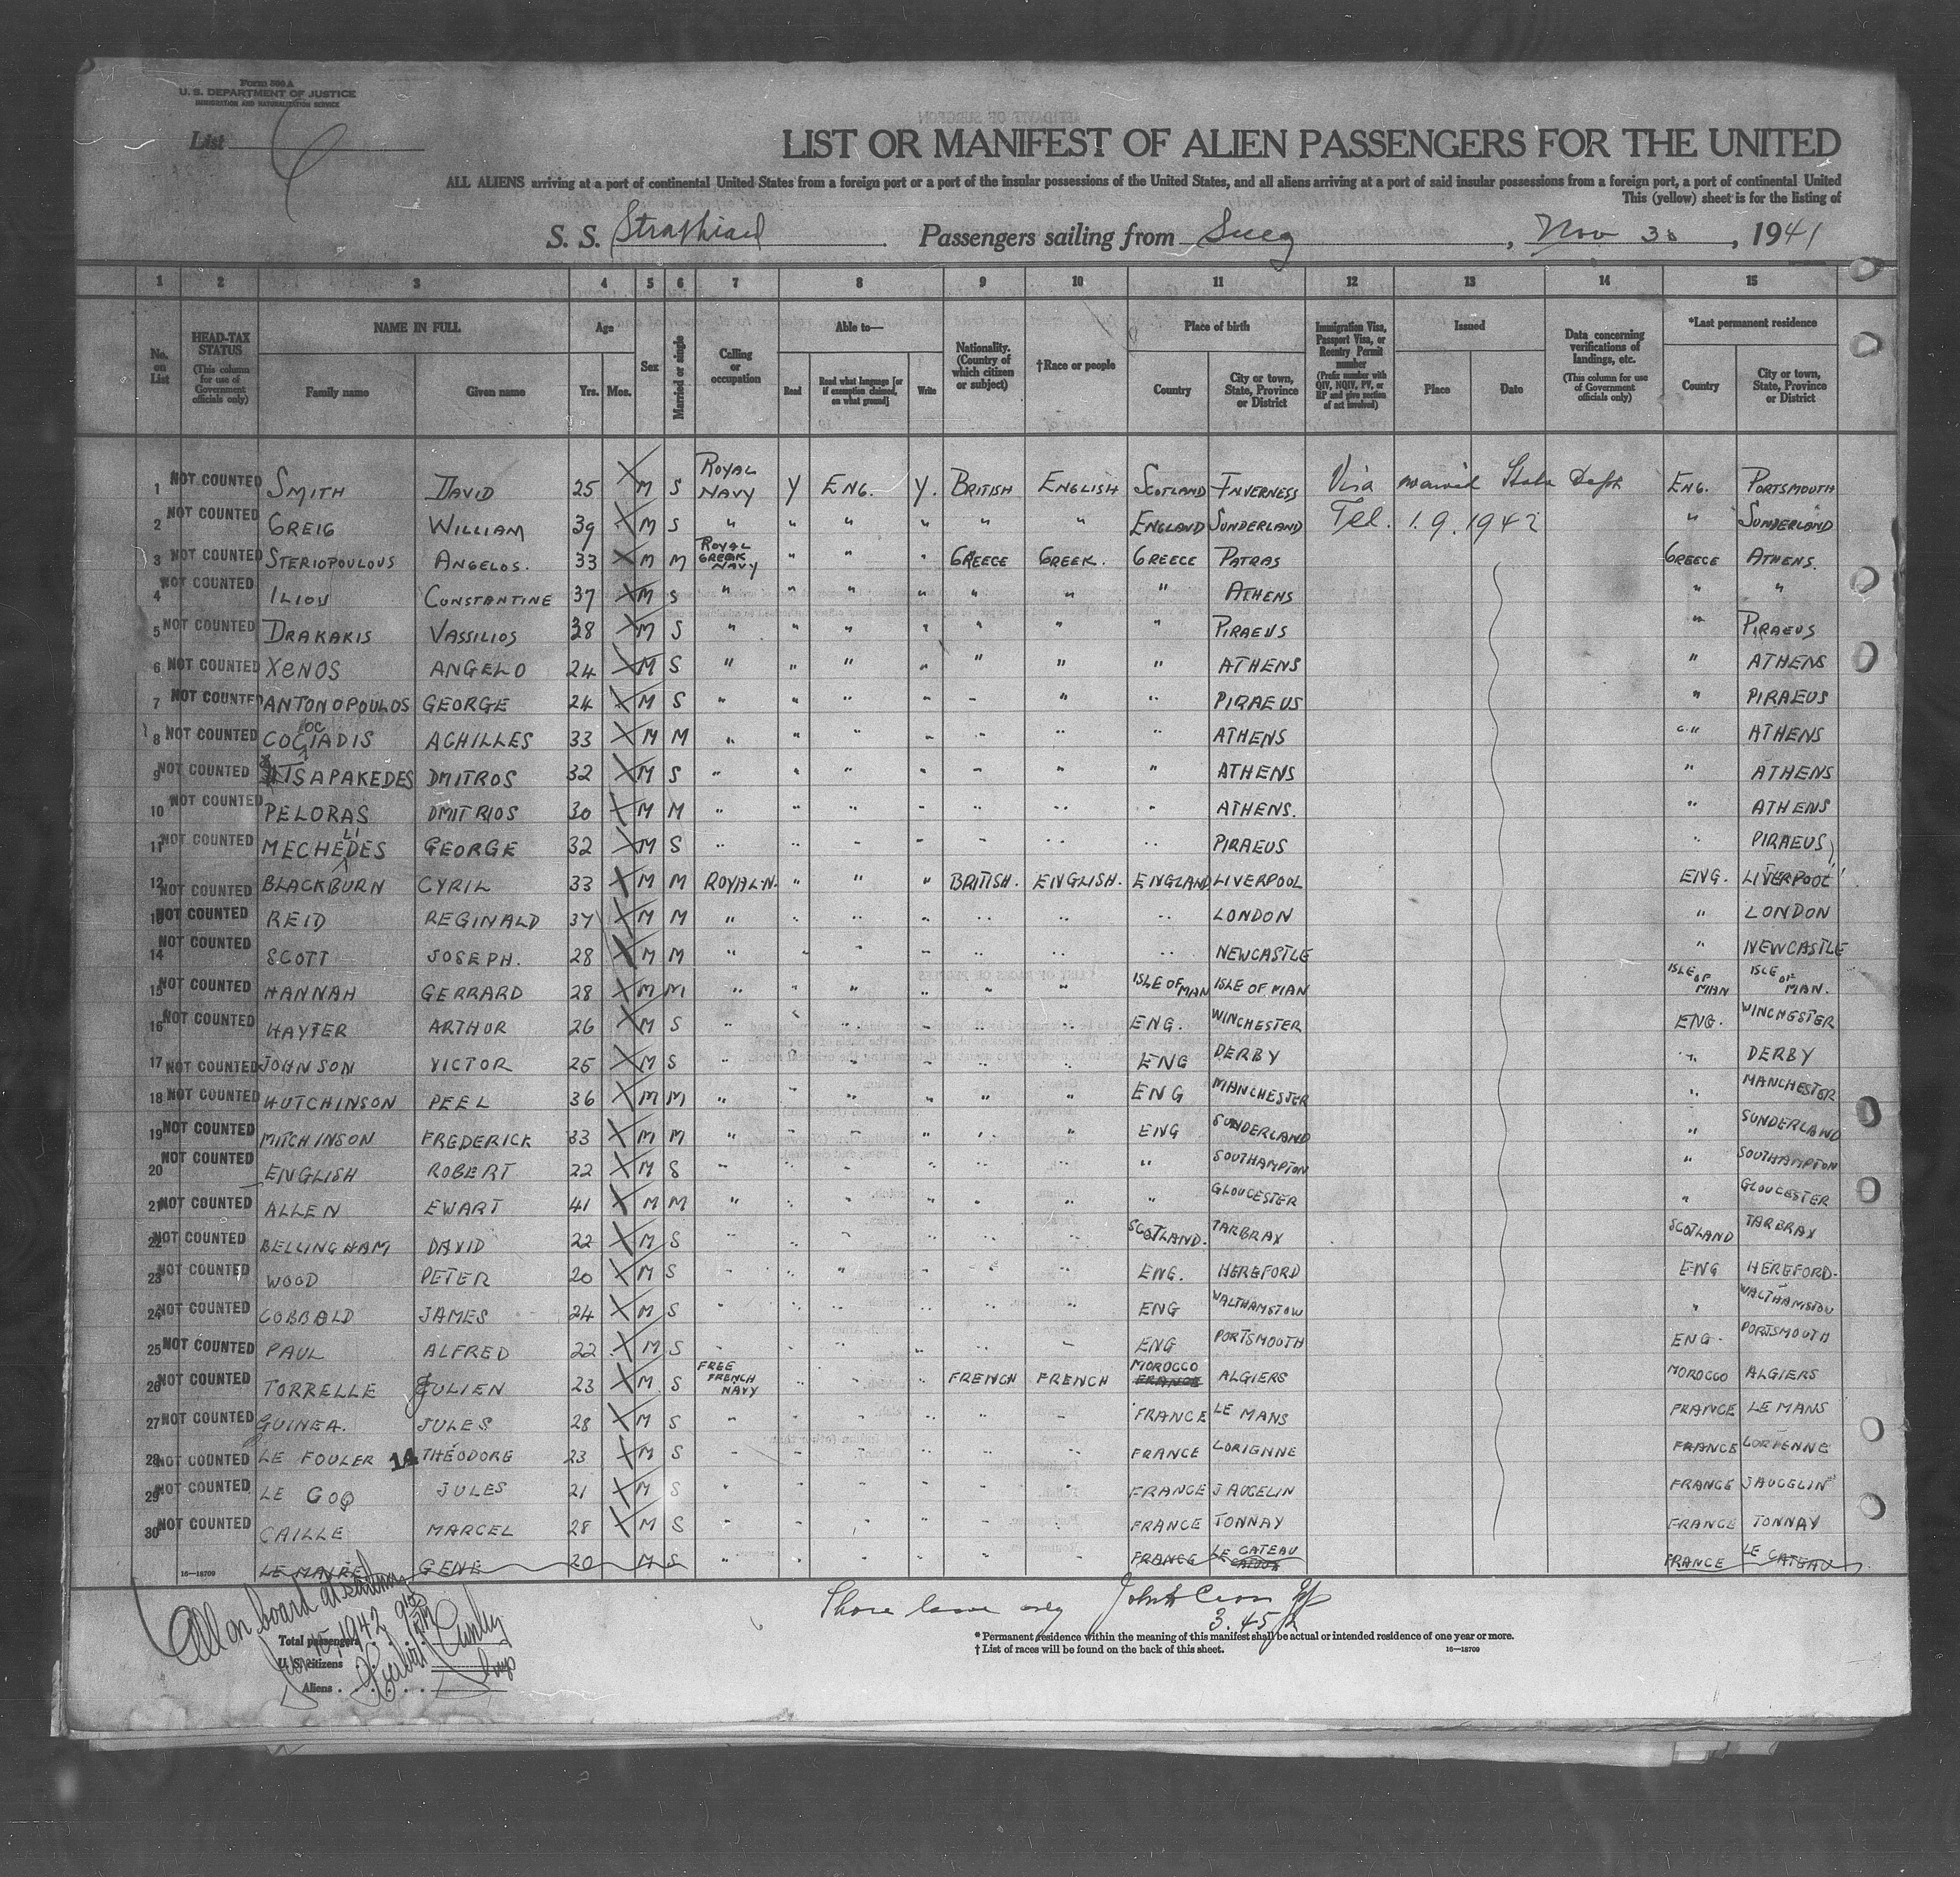 Form 500 A
U. S. DEPARTMENT OF JUSTICE
IMMIGRATION AND NATURALIZATION SERVICE
List
LIST OR MANIFEST OF ALIEN PASSENGERS FOR THE UNITED
ALL ALIENS arriving at a port of continental United States from a foreign port or a port of the insular possessions of the United States, and all aliens arriving at a port of said insular possessions from a foreign port, a port of continental United
This (yellow) sheet is for the listing of
S. S. Passengers sailing from Suez, Nov 30, 1941
1 2 3 4 5 6 7 8 9 10 11 12 13 14 15
No. on List
HEAD-TAX STATUS (This column for use of Government officials only)
NAME IN FULL
Family name Given name
Age Yrs. Mos.
Sex
Married or single
Calling or occupation
Able to—
Read Read what language [or if exemption claimed, on what ground] Write
Nationality. (Country of which citizen or subject)
†Race or people
Place of birth
Country City or town, State, Province or District
Immigration Visa, Passport Visa, or Reentry Permit number (Prefix number with QIV, NQIV, PV, or RP and give section of act involved)
Issued
Place Date
Data concerning verifications of landings, etc. (This column for use of Government officials only)
*Last permanent residence
Country City or town, State, Province or District
1 NOT COUNTED SMITH DAVID 25 M S ROYAL NAVY Y ENG. Y. BRITISH ENGLISH SCOTLAND INVERNESS Visa waived State Dept ENG. PORTSMOUTH
2 NOT COUNTED GREIG WILLIAM 39 M S " " " " " " ENGLAND SUNDERLAND Tel. 1.9.1942 " SUNDERLAND
3 NOT COUNTED STERIOPOULOUS ANGELOS. 33 M M ROYAL GREEK NAVY " " " GREECE GREEK. GREECE PATRAS GREECE ATHENS.
4 NOT COUNTED ILIOU CONSTANTINE 37 M S " " " " " " " ATHENS " "
5 NOT COUNTED DRAKAKIS VASSILIOS 38 M S " " " " " " " PIRAEUS " PIRAEUS
6 NOT COUNTED XENOS ANGELO 24 M S " " " " " " " ATHENS " ATHENS
7 NOT COUNTED ANTONOPOULOS GEORGE 24 M S " " " " " " " PIRAEUS " PIRAEUS
8 NOT COUNTED ACHILLES 33 M M " " " " " " " ATHENS " ATHENS
9 NOT COUNTED TSAPAKEDES DMITROS 32 M S " " " " " " " ATHENS " ATHENS
10 NOT COUNTED PELORAS DMITRIOS 30 M M " " " " " " " ATHENS. " ATHENS
11 NOT COUNTED MECHELIDES GEORGE 32 M S " " " " " " " PIRAEUS " PIRAEUS
12 NOT COUNTED BLACKBURN CYRIL 33 M M ROYAL-N. " " " BRITISH. ENGLISH. ENGLAND LIVERPOOL ENG. LIVERPOOL
13 NOT COUNTED REID REGINALD 37 M M " " " " " " " LONDON " LONDON
14 NOT COUNTED SCOTT JOSEPH. 28 M M " " " " " " " NEWCASTLE " NEWCASTLE
15 NOT COUNTED HANNAH GERRARD 28 M M " " " " " " ISLE OF MAN ISLE OF MAN ISLE OF MAN ISLE OF MAN.
16 NOT COUNTED HAYTER ARTHUR 26 M S " " " " " " ENG. WINCHESTER ENG. WINCHESTER
17 NOT COUNTED JOHNSON VICTOR 25 M S " " " " " " ENG DERBY " DERBY
18 NOT COUNTED HUTCHINSON PEEL 36 M M " " " " " " ENG MANCHESTER " MANCHESTER
19 NOT COUNTED MITCHINSON FREDERICK 33 M M " " " " " " ENG SUNDERLAND " SUNDERLAND
20 NOT COUNTED ENGLISH ROBERT 22 M S " " " " " " " SOUTHAMPTON " SOUTHAMPTON
21 NOT COUNTED ALLEN EWART 41 M M " " " " " " " GLOUCESTER " GLOUCESTER
22 NOT COUNTED BELLINGHAM DAVID 22 M S " " " " " " SCOTLAND. TARBRAX SCOTLAND TARBRAX
23 NOT COUNTED WOOD PETER 20 M S " " " " " " ENG. HEREFORD ENG HEREFORD.
24 NOT COUNTED COBBALD JAMES 24 M S " " " " " " ENG WALTHAMSTOW " WALTHAMSTOW
25 NOT COUNTED PAUL ALFRED 22 M S " " " " " " ENG PORTSMOUTH ENG. PORTSMOUTH
26 NOT COUNTED TORRELLE JULIEN 23 M S FREE FRENCH NAVY " " " FRENCH FRENCH MOROCCO FRANCE ALGIERS MOROCCO ALGIERS
27 NOT COUNTED GUINEA. JULES 28 M S " " " " " " FRANCE LE MANS FRANCE LE MANS
28 NOT COUNTED LE FOULER 14 THÉODORE 23 M S " " " " " " FRANCE LORIENNE FRANCE LORIENNE
29 NOT COUNTED LE GOQ JULES 21 M S " " " " " " FRANCE JAUGELIN FRANCE JAUGELIN
30 NOT COUNTED CAILLE MARCEL 28 M S " " " " " " FRANCE TONNAY FRANCE TONNAY
16—18709 LE MAIRE GENE 20 M S " " " " " " FRANCE LE CATEAU FRANCE LE CATEAU
All on board at
1942
Shore leave only
3.45
Total passengers
U. S. citizens
Aliens
* Permanent residence within the meaning of this manifest shall be actual or intended residence of one year or more.
† List of races will be found on the back of this sheet. 16—18709